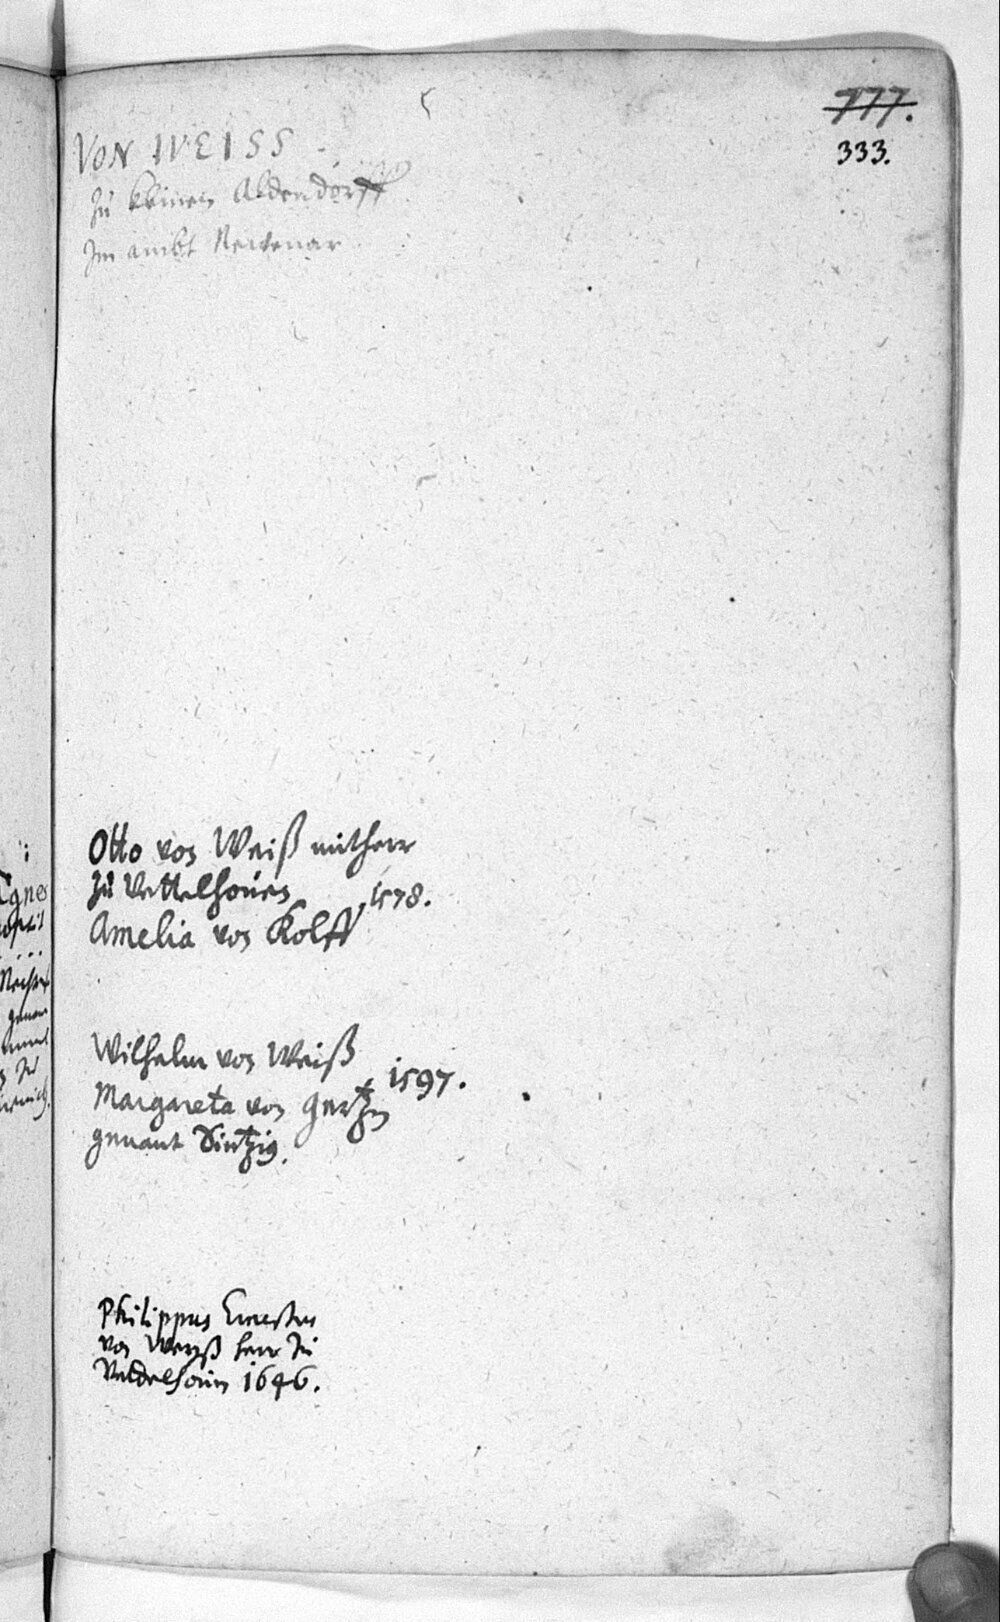 777.
333.
VON WEISS
Zu kleinen Aldendorff
Im ambt Newenar
Otto von Weiß mitherr
zu Vettelhouen
Amelia von Kolff, 1578.
Wilhelm von Weiß
Margareta von Gertzn, 1597.
genant Sintzig.
Philippus Ernestus
von Weyß herr zu
Veddelhouen 1646.
Agnes